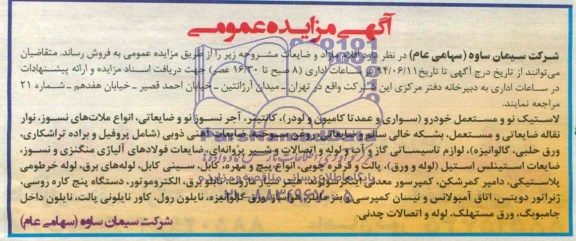 آگهی مزایده عمومی
شرکت سیمان ساوه (سهامی عام) در نظر دارد اقلام مازاد و ضایعات مشروحه زیر را از طریق مزایده عمومی به فروش رساند. متقاضیان
می‌توانند از تاریخ درج آگهی تا تاریخ ۱۴۰۴/۰۶/۱۱ در ساعات اداری (۸ صبح تا ۱۶/۳۰ عصر) جهت دریافت اسناد مزایده و ارائه پیشنهادات
در ساعات اداری به دبیرخانه دفتر مرکزی این شرکت واقع در تهران - میدان آرژانتین - خیابان احمد قصیر - خیابان هفدهم - شماره ۲۱
مراجعه نمایند.
لاستیک نو و مستعمل خودرو (سواری و عمدتا کامیون و لودر)، کانتینر، آجر نسوز نو و ضایعاتی، انواع ملات‌های نسوز، نوار
نقاله ضایعاتی و مستعمل، بشکه خالی سالم و ضایعاتی، روغن سوخته، ضایعات آهنی ذوبی (شامل پروفیل و براده تراشکاری،
ورق حلبی، گالوانیزه)، لوازم تاسیساتی گاز و آب و لوله و اتصالات و شیر پروانه‌ای، ضایعات فولادهای آلیاژی منگنزی و نسوز،
ضایعات استینلس استیل (لوله و ورق)، پالت و قرقره چوبی، انواع پیچ و مهره، کابل، سینی کابل، لوله‌های برق، لوله خرطومی
پلاستیکی، دامپر کمرشکن، کمپرسور معدنی، تابلو برق، الکتروموتور، دستگاه پنج کاره روسی،
ژنراتور دویتس، اتاق آمبولانس و نیسان کمپرسی، ورق گالوانیزه، نایلون رول، کاور نایلونی پالت، نایلون داخل
جامبوبگ، ورق مستهلک، لوله و اتصالات چدنی.
شرکت سیمان ساوه (سهامی عام)